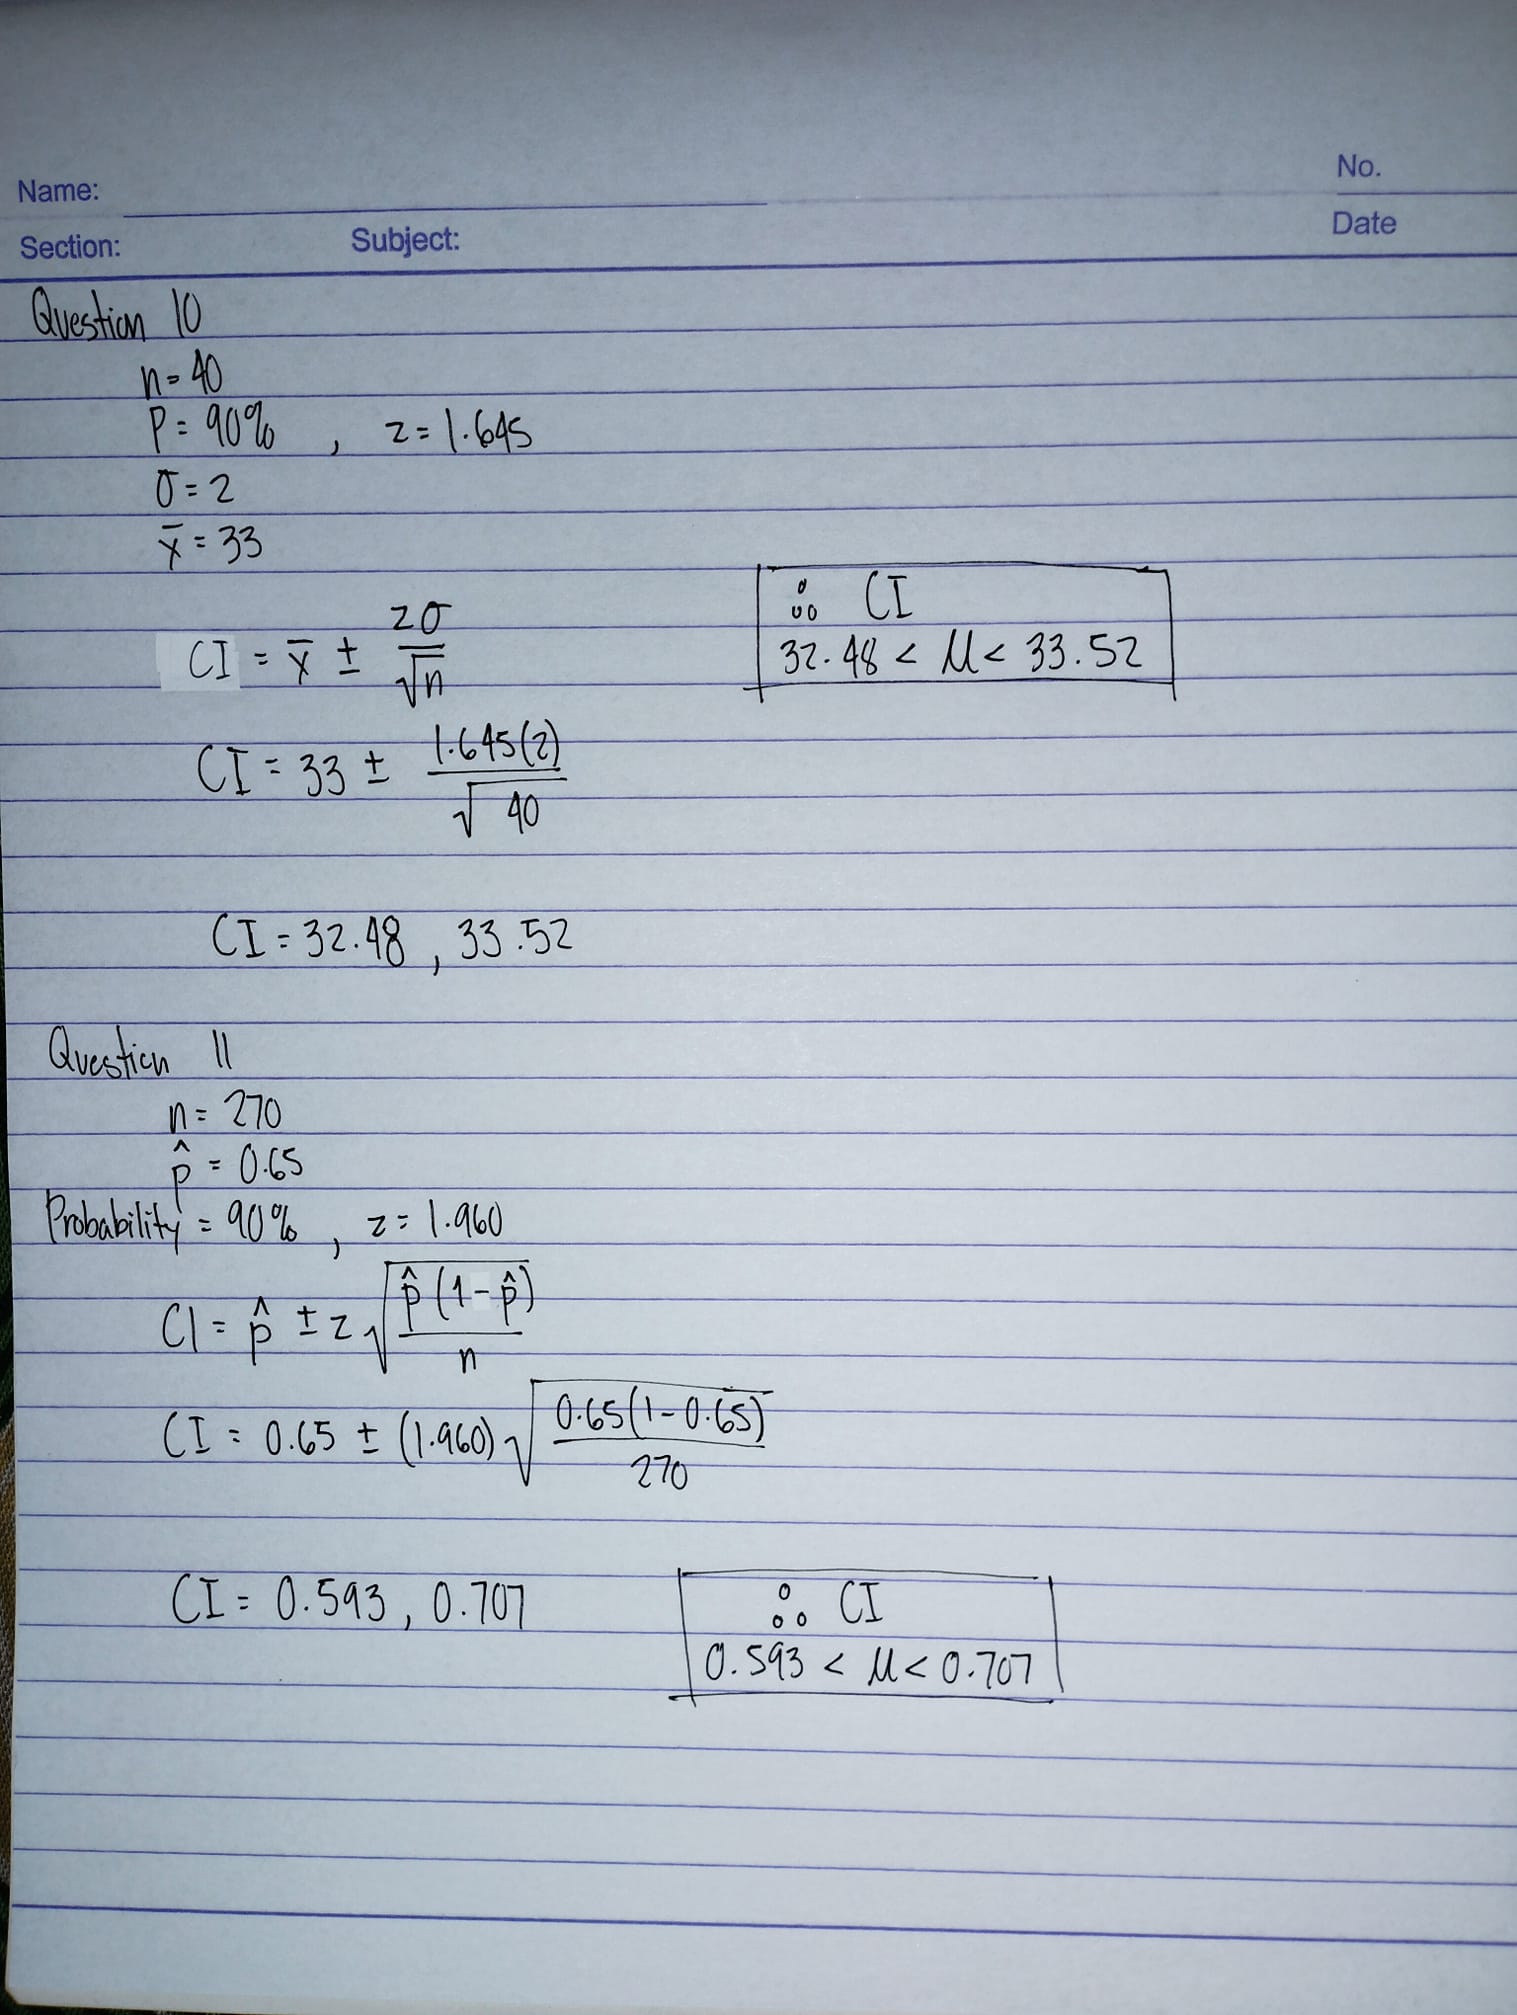 Name:
No.
Section: Subject:
Date
Question 10
n = 40
P = 90% , z = 1.645
σ = 2
x̄ = 33
CI = x̄ ± zσ/√n
∴ CI
32.48 < μ < 33.52
CI = 33 ± 1.645(2)/√40
CI = 32.48 , 33.52
Question 11
n = 270
p̂ = 0.65
Probability = 90% , z = 1.960
CI = p̂ ± z √(p̂(1-p̂)/n)
CI = 0.65 ± (1.960) √(0.65(1-0.65)/270)
CI = 0.593 , 0.707
∴ CI
0.593 < μ < 0.707